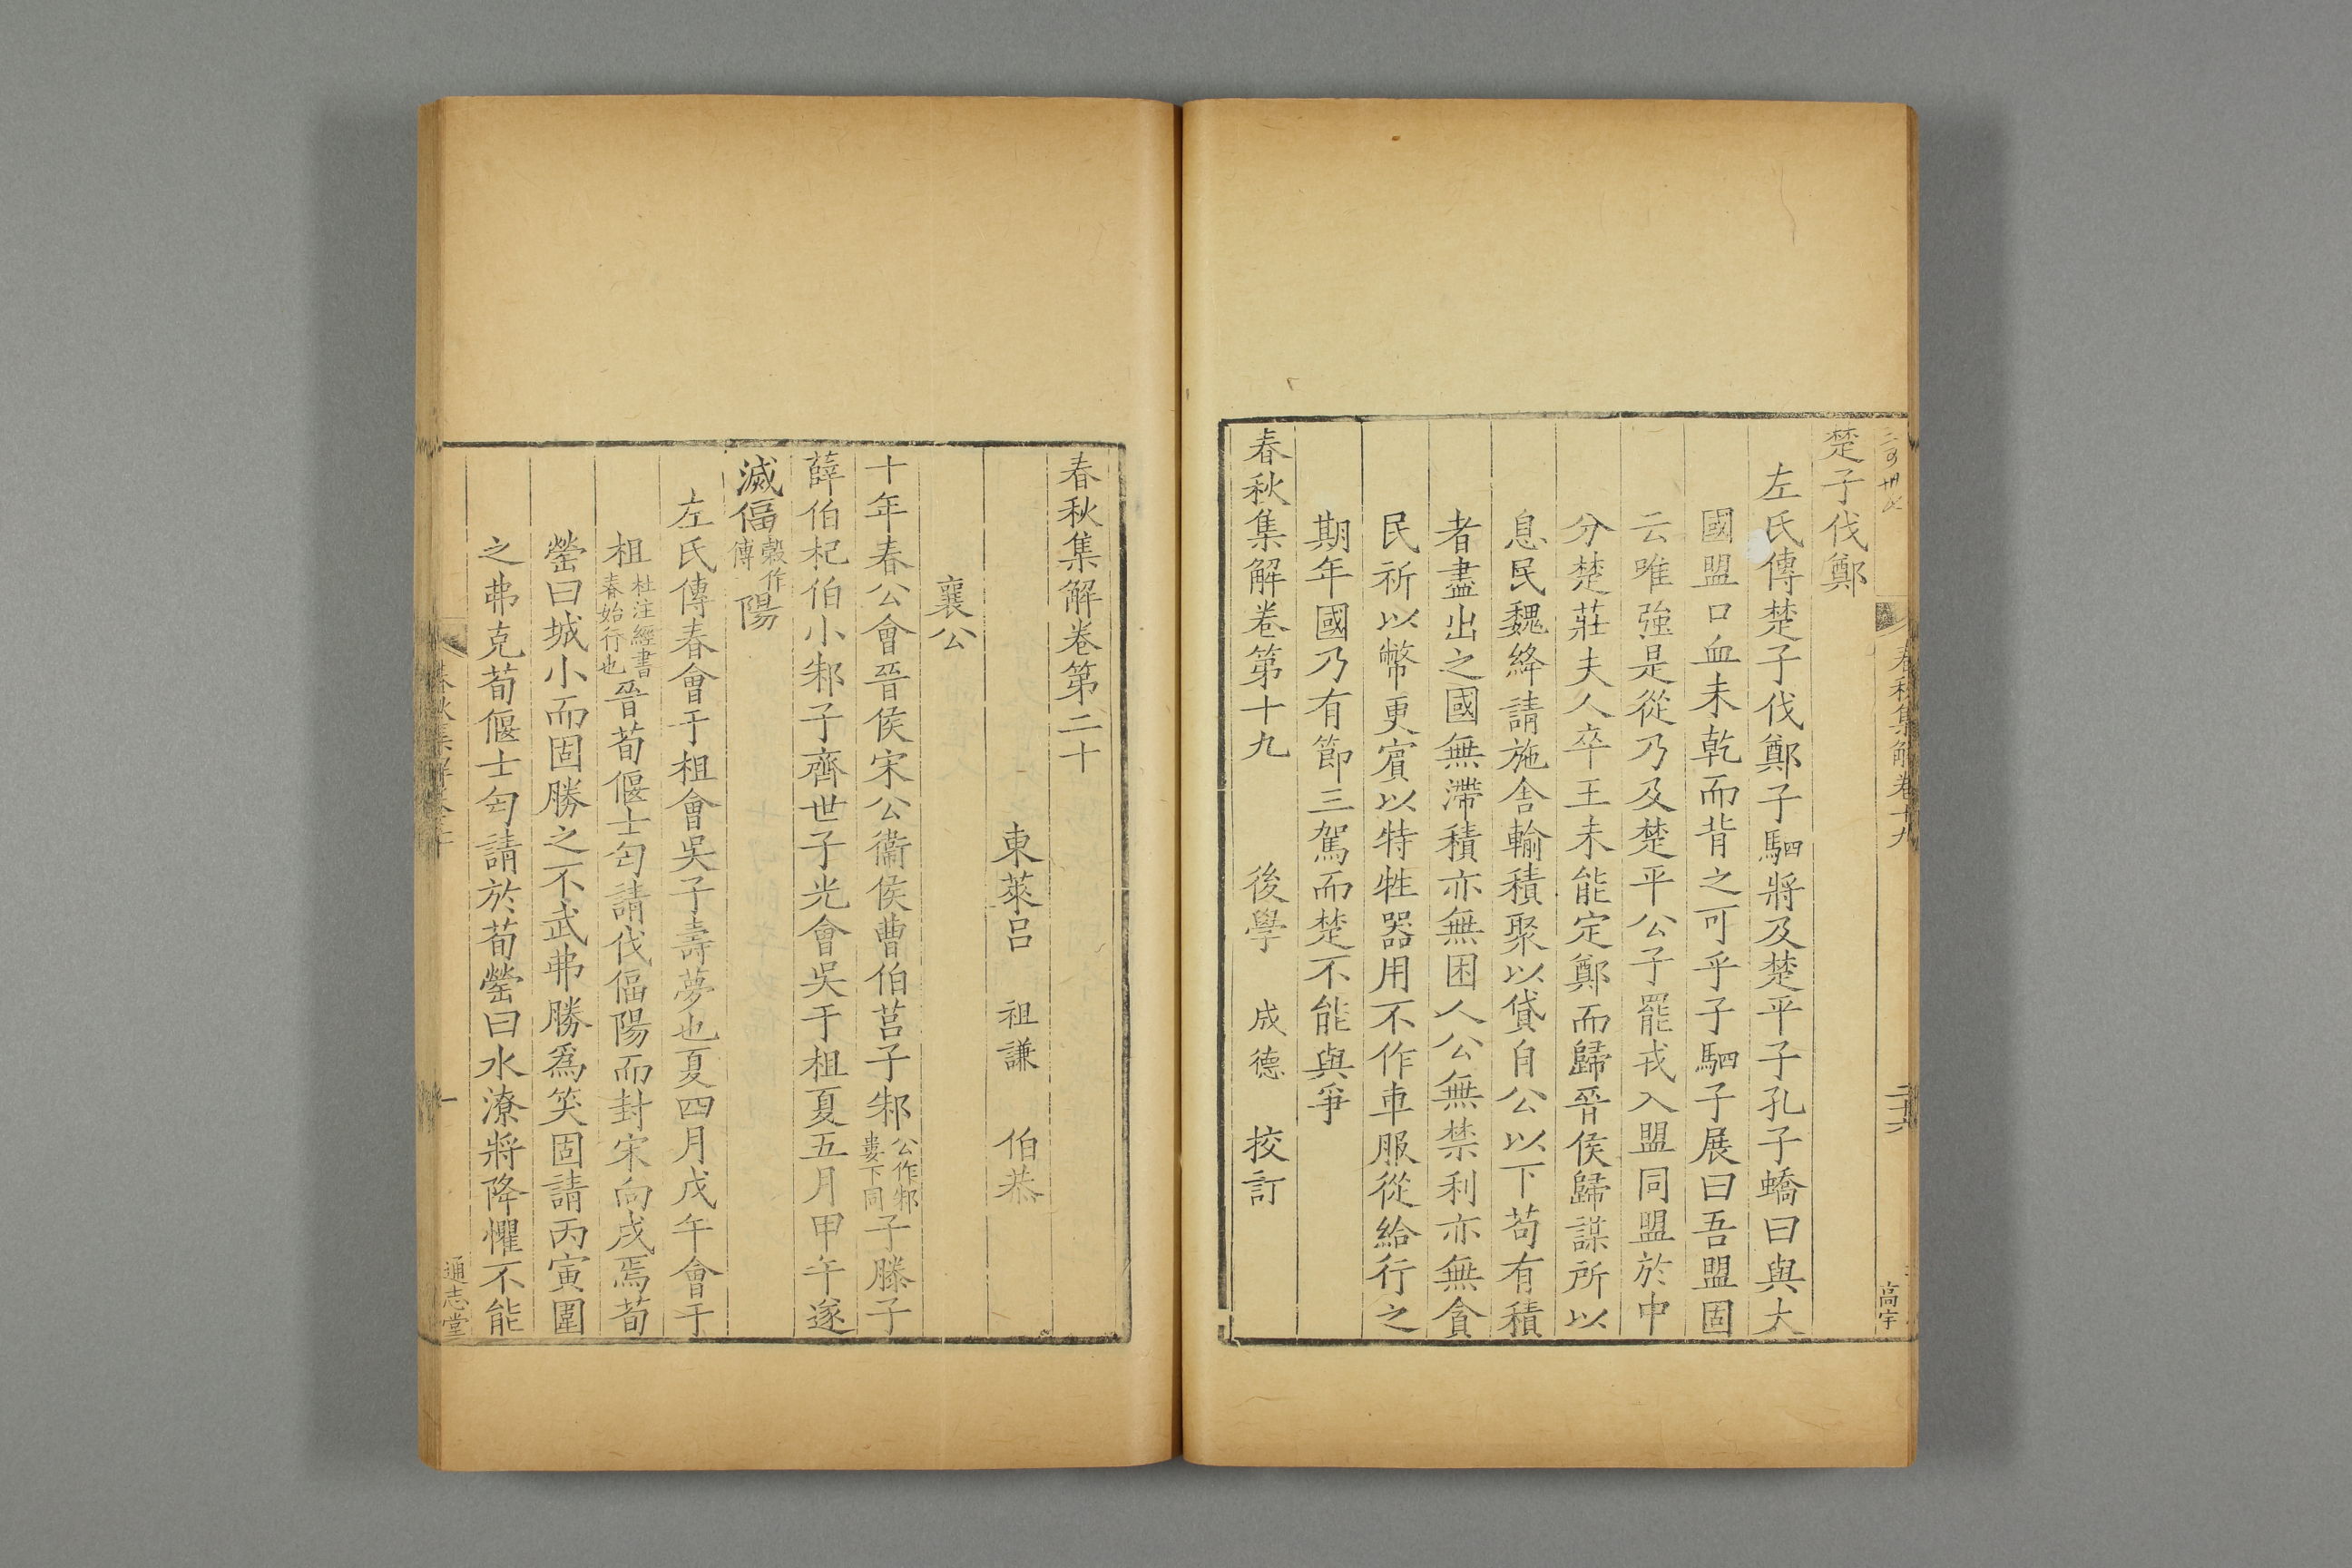 春秋集解卷十九
二十六
高宇
楚子伐鄭
左氏傳楚子伐鄭子駟將及楚平子孔子蟜曰與大
國盟口血未乾而背之可乎子駟子展曰吾盟固
云唯強是從乃及楚平公子罷戎入盟同盟於中
分楚莊夫人卒王未能定鄭而歸晉侯歸謀所以
息民魏絳請施舍輸積聚以貸自公以下苟有積
者盡出之國無滯積亦無困人公無禁利亦無貪
民祈以幣更賓以特牲器用不作車服從給行之
期年國乃有節三駕而楚不能與爭
春秋集解卷第十九 後學 成德 挍訂
春秋集解卷第二十
東萊呂 祖謙 伯恭
襄公
十年春公會晉侯宋公衞侯曹伯莒子邾公作邾婁下同子滕子
薛伯杞伯小邾子齊世子光會吳于柤夏五月甲午遂
滅偪穀作傅陽
左氏傳春會于柤會吳子壽夢也夏四月戊午會于
柤杜注經書春始行也晉荀偃士匄請伐偪陽而封宋向戌焉荀
罃曰城小而固勝之不武弗勝爲笑固請丙寅圍
之弗克荀偃士匄請於荀罃曰水潦將降懼不能
春秋集解卷二十
一
通志堂